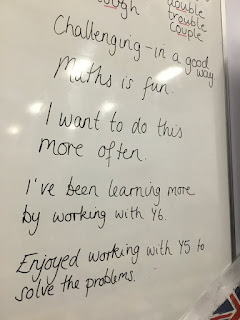 ough
double
trouble
couple
Challenging - in a good
way
Maths is fun.
I want to do this
more often.
I've been learning more
by working with Y6.
Enjoyed working with Y5 to
solve the problems.